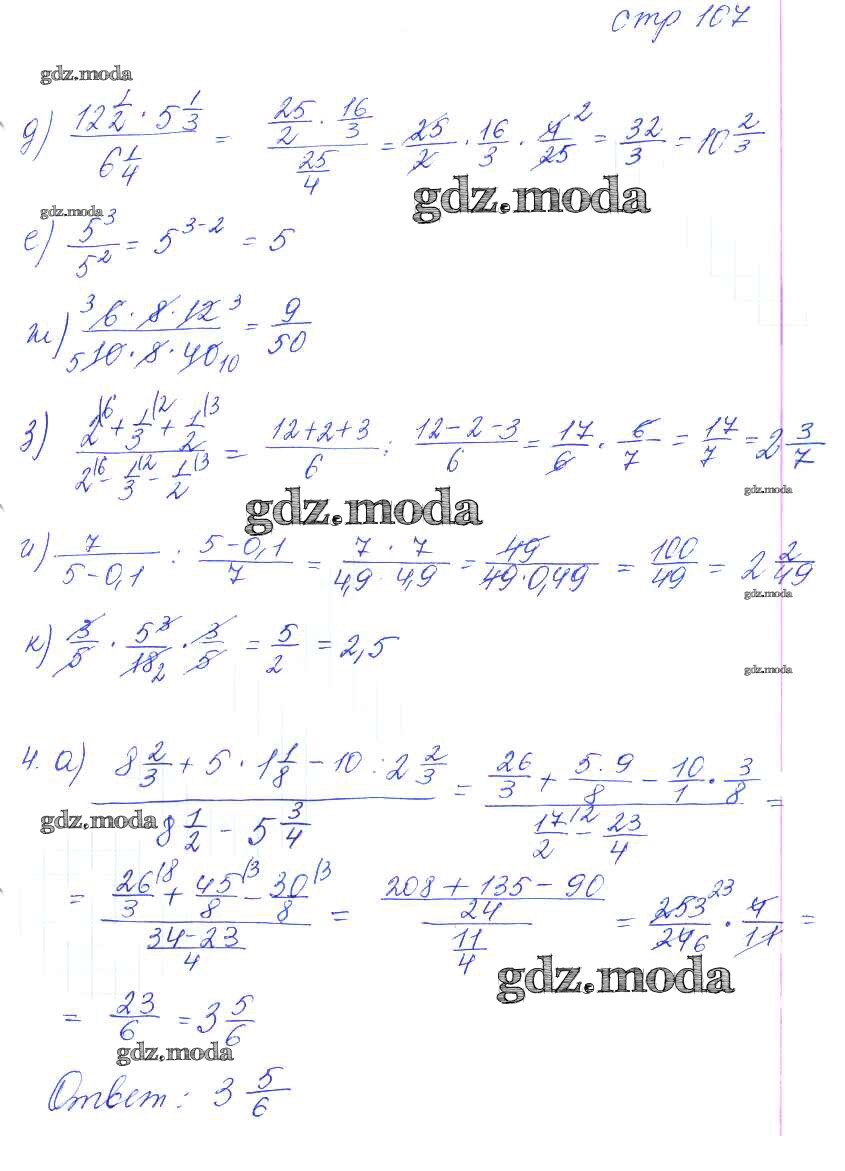 стр 167
gdz.moda
д) (12 1/2 · 5 1/3)/(6 1/4) = (25/2 · 16/3)/(25/4) = 25/2 · 16/3 · 4/25 2 = 32/3 = 10 2/3
gdz.moda
gdz.moda
е) 5^3/5^2 = 5^(3-2) = 5
ж) (3 6 · 8 · 12 3)/(5 10 · 8 · 40 10) = 9/50
з) (2|6 + 1/3|2 + 1/2|3)/(2|6 - 1/3|2 - 1/2|3) = (12+2+3)/6 : (12-2-3)/6 = 17/6 · 6/7 = 17/7 = 2 3/7
gdz.moda
gdz.moda
и) 7/(5-0,1) : (5-0,1)/7 = (7 · 7)/(4,9 · 4,9) = 49/(49·0,49) = 100/49 = 2 2/49
gdz.moda
к) 3/5 · 5 3/18 2 · 3/5 = 5/2 = 2,5
gdz.moda
4. а) (8 2/3 + 5 · 1 1/8 - 10 : 2 2/3)/(8 1/2 - 5 3/4) = (26/3 + 5·9/8 - 10/1 · 3/8)/(17/2|2 - 23/4) =
gdz.moda
= (26/3|8 + 45/8|3 - 30/8|3)/((34-23)/4) = ((208+135-90)/24)/(11/4) = 253 23/24 6 · 4/11 =
gdz.moda
= 23/6 = 3 5/6
gdz.moda
Ответ: 3 5/6